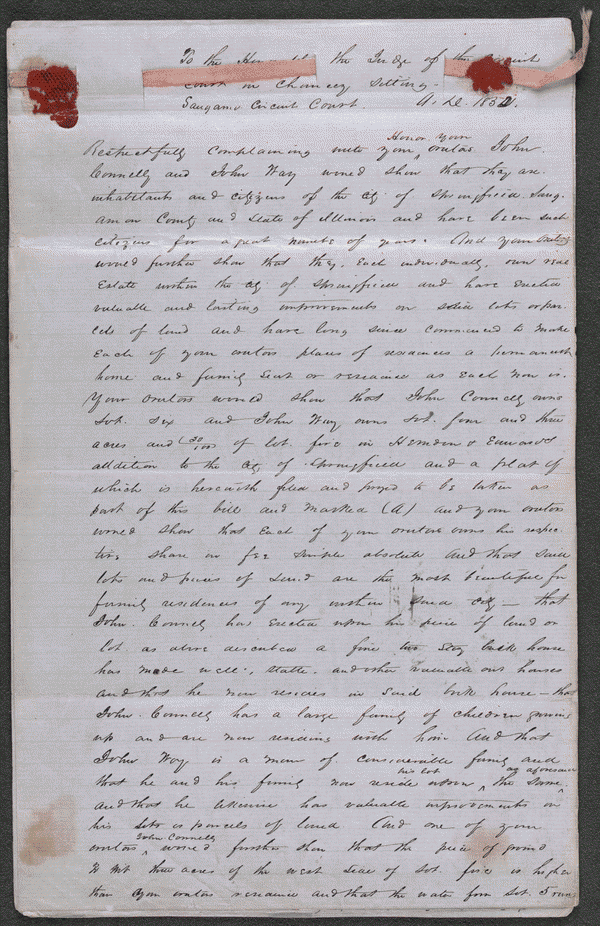 To the Hon the Judge of the Circuit
Court in Chancery Sitting -
Sangamo Circuit Court. A. D. 185
Honor your
Respectfully complaining unto your orators John
Connelly and John Way would show that they are
inhabitants and citizens of the city of Springfield Sang-
amon County and State of Illinois and have been such
citizens for a great number of years. And your orators
would further show that they, each individually, own real
Estate within the city of Springfield and have Erected
valuable and lasting improvements on said lots or par-
cels of land and have long since commenced to make
Each of your orators places of residences a permanent
home and family seat or residence as Each now is.
Your orators would show that John Connelly owns
Lot. Six and John Way owns Lot. four and three
acres and (30/100 of lot. five in & Edwards
addition to the city of Springfield and a plat of
which is herewith filed and prayed to be taken as
part of this bill and marked (A) and your orators
would show that Each of your orators owns his respec-
tive share in fee simple absolute And that said
lots and pieces of land are the most beautiful for
family residences of any within said city - that
John. Connelly has Erected upon his piece of land or
lot as above described a fine two story brick house
has made well, stable, and other valuable out houses
and that he now resides in said brick house - that
John. Connelly has a large family of children growing
up and are now residing with him And that
John Way is a man of considerable family and
that he and his family now reside upon the same,
his lot as aforesaid
and that he likewise has valuable improvements on
his lots or parcels of land And one of your
John Connelly
orators would further show that the piece of ground
to wit three acres of the west side of Lot. five is higher
than your orators residence and that the water from Lot. 5 runs